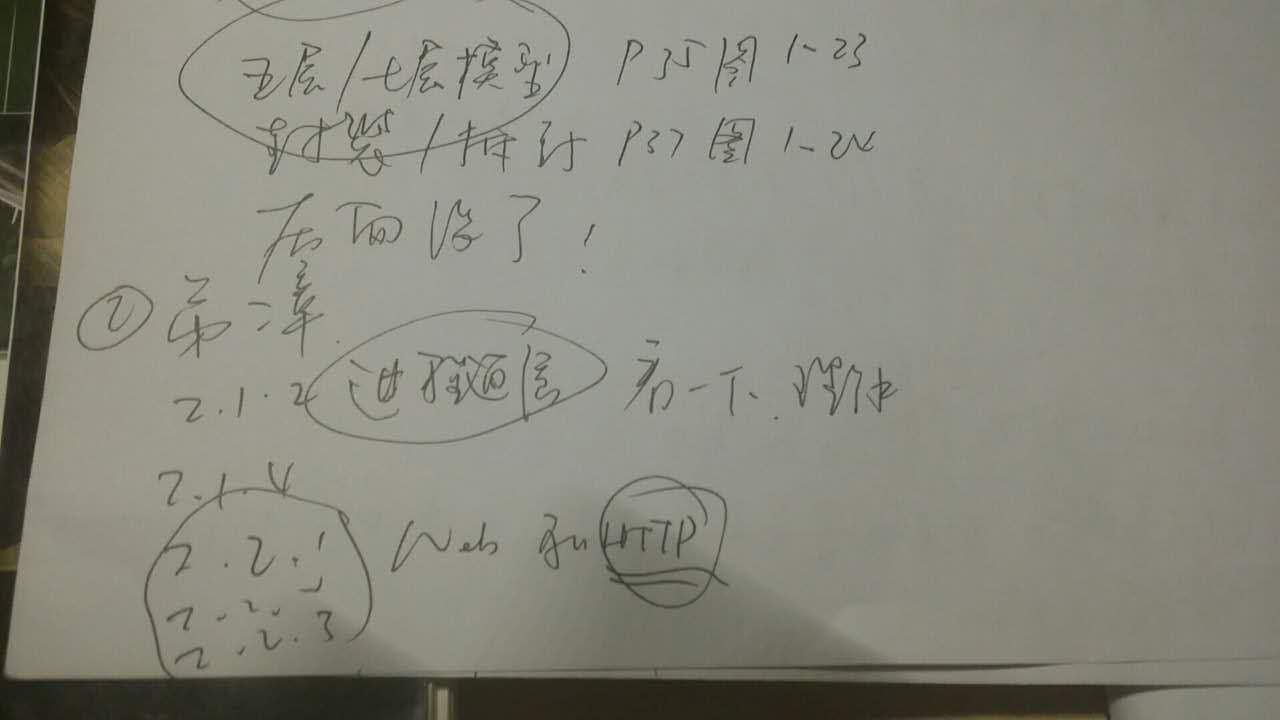 五层/七层模型 P35图 1-23
封装/拆封 P37图 1-24
后面没了!
② 第二章
2.1.2 进程通信 看一下、理解
2.1.4
2.2.1 Web和HTTP
2.2.2
2.2.3